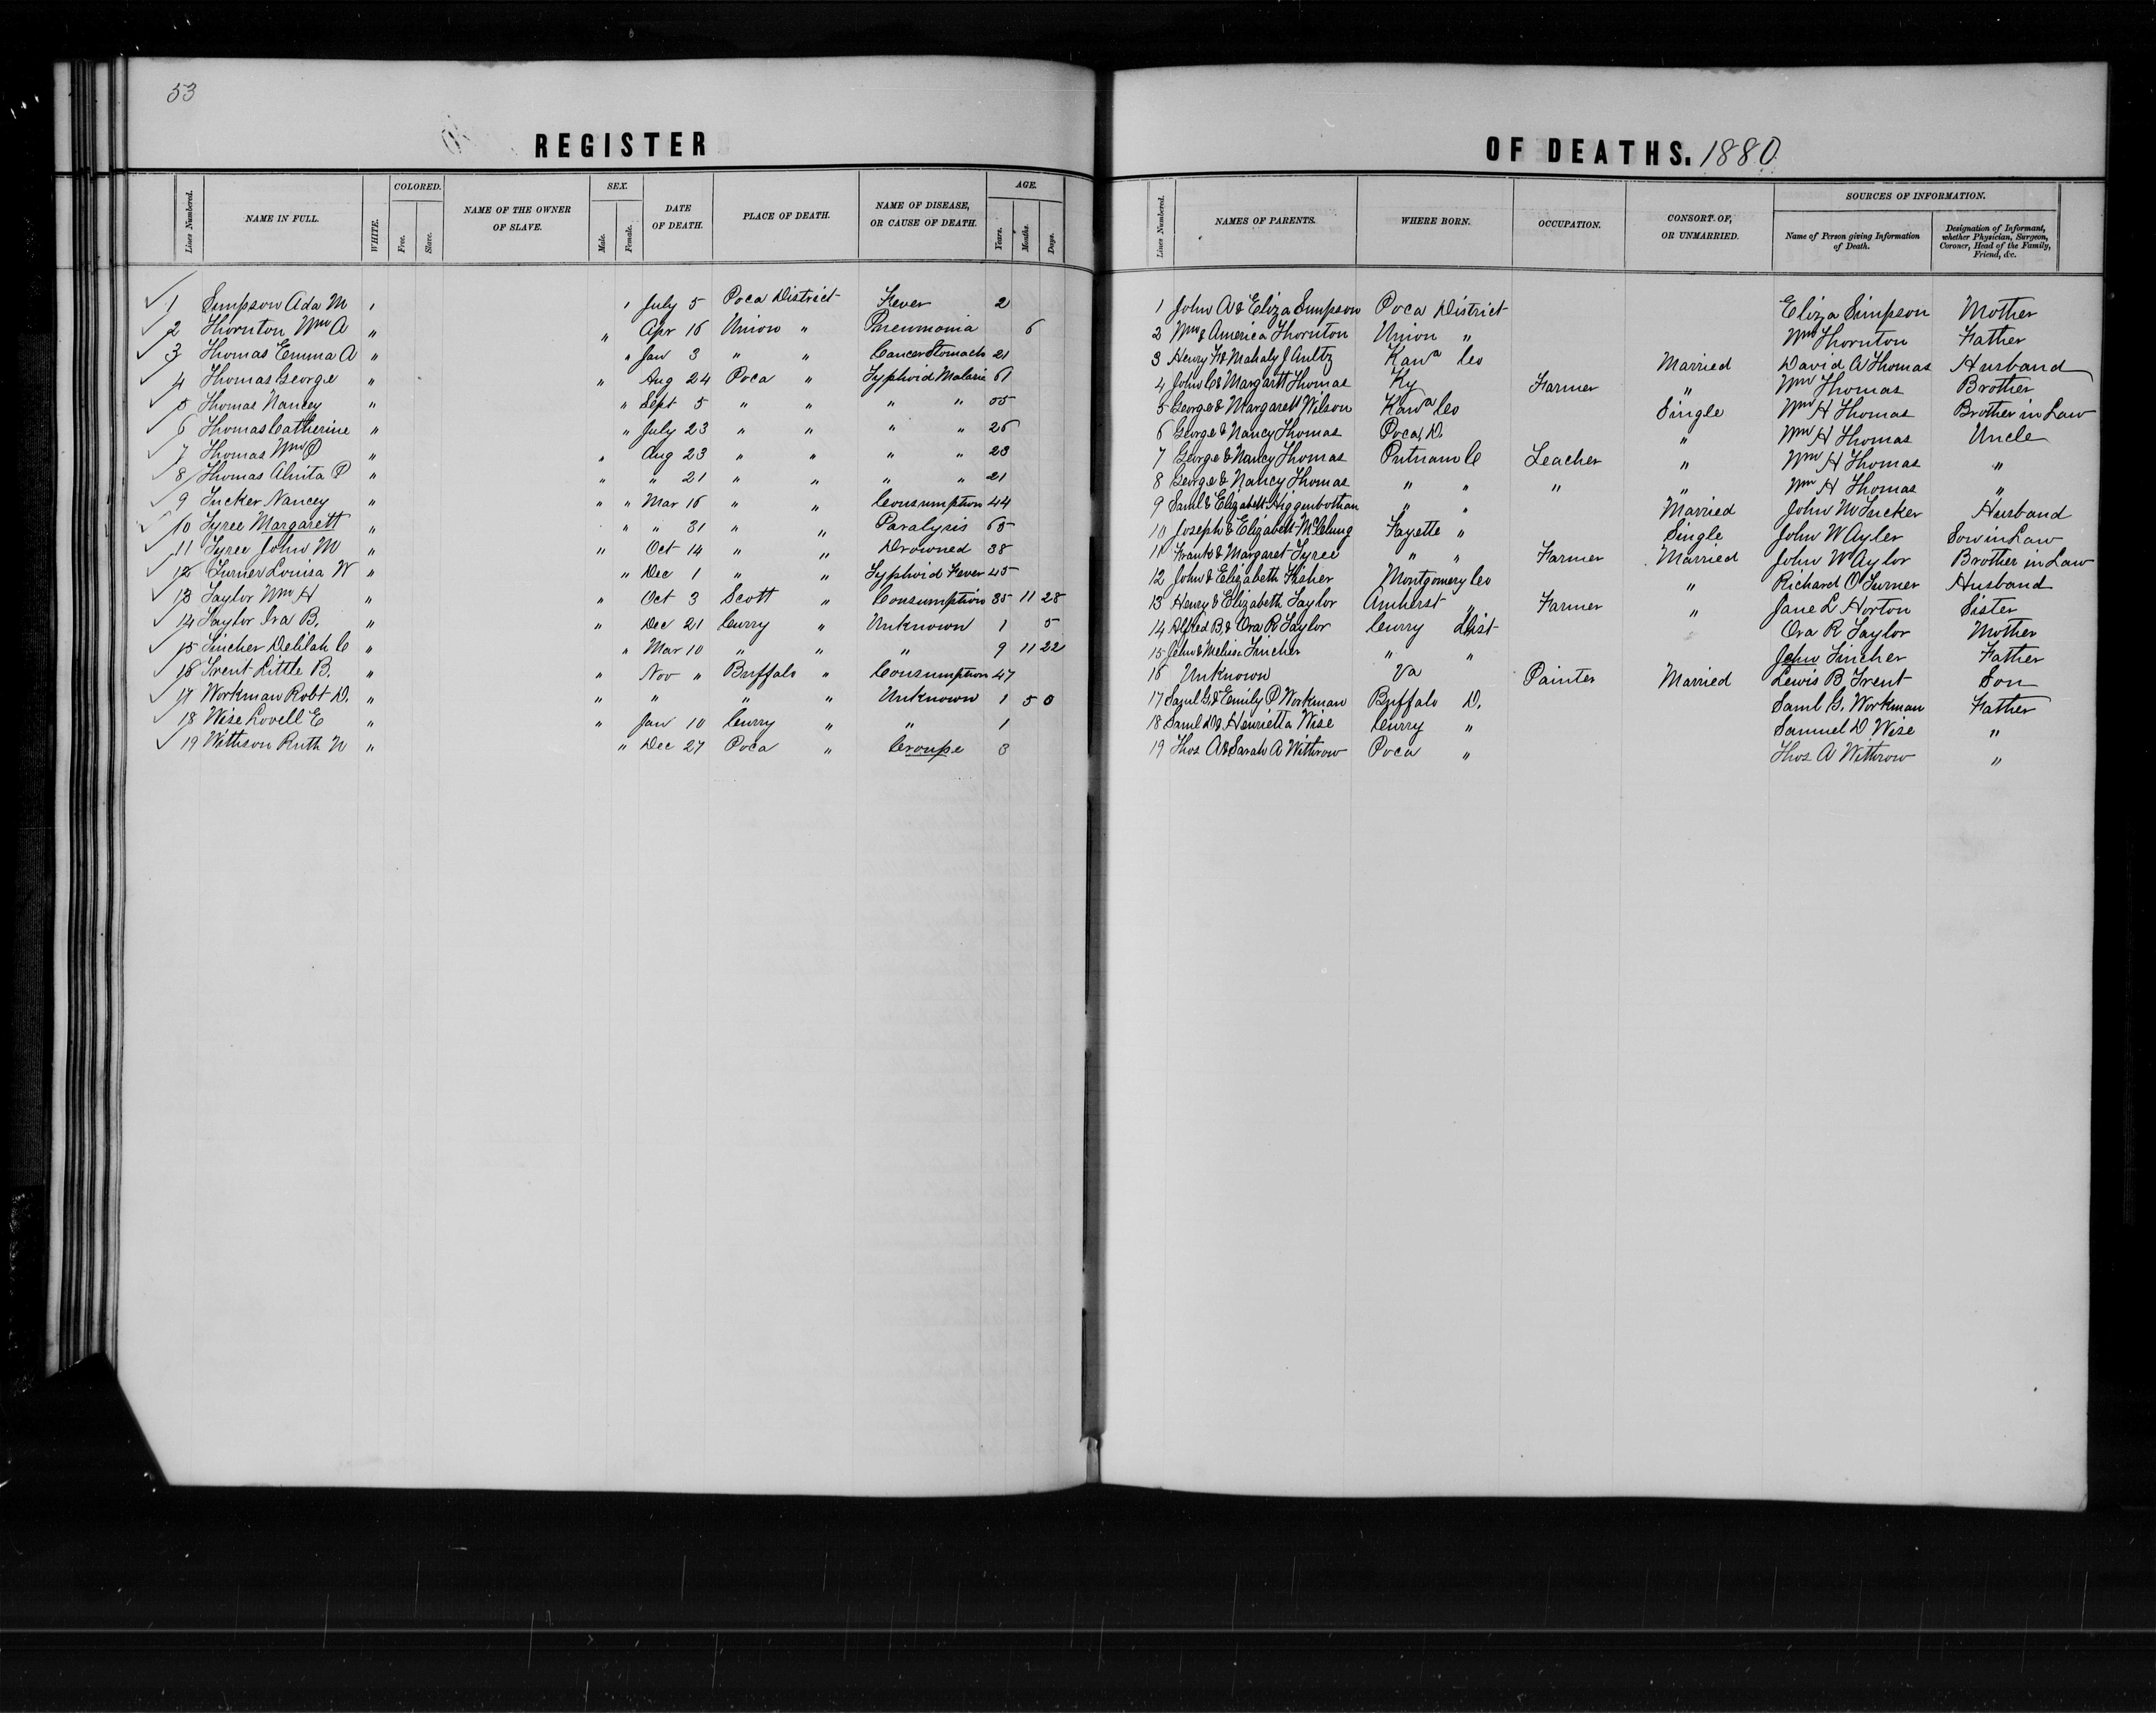 53
REGISTER OF DEATHS. 1880.
Lines Numbered. NAME IN FULL. WHITE. COLORED. Free. Slave. NAME OF THE OWNER OF SLAVE. SEX. Male. Female. DATE OF DEATH. PLACE OF DEATH. NAME OF DISEASE, OR CAUSE OF DEATH. AGE. Years. Months. Days.
1 Simpson Ada M " " July 5 Poca District Fever 2
2 Thornton Wm A " " Apr 16 Union " Pneumonia 6
3 Thomas Emma A " " Jan 3 " " Cancer Stomach 21
4 Thomas George " " Aug 24 Poca " Typhoid Malaria 61
5 Thomas Nancy " " Sept 5 " " " " 55
6 Thomas Catherine " " July 23 " " " " 26
7 Thomas Wm P " " Aug 23 " " " " 23
8 Thomas Alnita P " " " 21 " " " " 21
9 Tucker Nancey " " " Mar 16 " " Consumption 44
10 Tyree Margarett " " " " 31 " " Paralysis 65
11 Tyree John M " " Oct 14 " " Drowned 38
12 Turner Louisa W " " Dec 1 " " Typhoid Fever 45
13 Taylor Wm H " " Oct 3 Scott " Consumption 35 11 28
14 Taylor Ira B. " " Dec 21 Curry " Unknown 1 5
15 Tincher Delilah C " " Mar 10 " " " 9 11 22
16 Trent Little B. " " Nov " Buffalo " Consumption 47
17 Workman Robt D. " " " " " Unknown 1 5 0
18 Wise Lovell E " " Jan 10 Curry " " 1
19 Withson Ruth N " " Dec 27 Poca " Croupe 3
Lines Numbered. NAMES OF PARENTS. WHERE BORN. OCCUPATION. CONSORT OF, OR UNMARRIED. SOURCES OF INFORMATION. Name of Person giving Information of Death. Designation of Informant, whether Physician, Surgeon, Coroner, Head of the Family, Friend, &c.
1 John A & Eliza Simpson Poca District Eliza Simpson Mother
2 Wm & America Thornton Union " Wm Thornton Father
3 Henry F & Mahaly J Aultz Kawa Co Married David A Thomas Husband
4 John C & Margarett Thomas Ky Farmer " Wm Thomas Brother
5 George & Margarett Wilson Kawa Co Single Wm H Thomas Brother in Law
6 George & Nancy Thomas Poca D. " Wm H Thomas Uncle
7 George & Nancy Thomas Putnam C Teacher " Wm H Thomas "
8 George & Nancy Thomas " " " " Wm H Thomas "
9 Saml & Elizabett Higgenbothan " " Married John W Tucker Husband
10 Joseph & Elizabett McClung Fayette " Single John W Ayler Son in Law
11 Frank & Margaret Tyree " " Farmer Married John W Aylor Brother in Law
12 John & Elizabeth Fisher Montgomery Co " Richard O Turner Husband
13 Henry & Elizabeth Taylor Amherst " Farmer " Jane L Horton Sister
14 Alfred B. & Ora R Taylor Curry Dist Ora R Taylor Mother
15 John & Melisa Tincher " " John Tincher Father
16 Unknown Va Painter Married Lewis B Trent Son
17 Saml G. & Emily P Workman Buffalo D. Saml G. Workman Father
18 Saml D & Henrietta Wise Curry " Samuel D Wise "
19 Thos A & Sarah A Withrow Poca " Thos A Withrow "